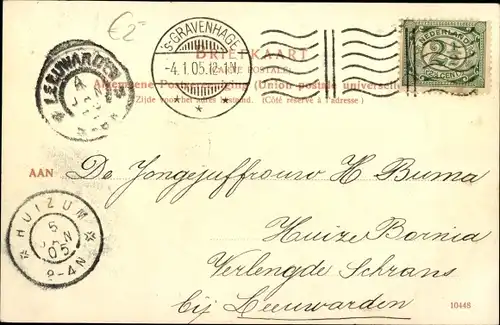 €2-
'S GRAVENHAGE
-4.1.05.12-1.N
NEDERLAND
2½
2½ CENT
BRIEFKAART
(CARTE POSTALE)
LEEUWARDEN
Algemeene Postvereeniging (Union postale universelle)
Zijde voor het adres bestemd. (Côté réservé à l'adresse)
AAN De Jongejuffrouw H Buma
HUIZUM
5
JAN
05
2-4N
Huize Bornia
Verlengde Schrans
bij Leeuwarden
10448